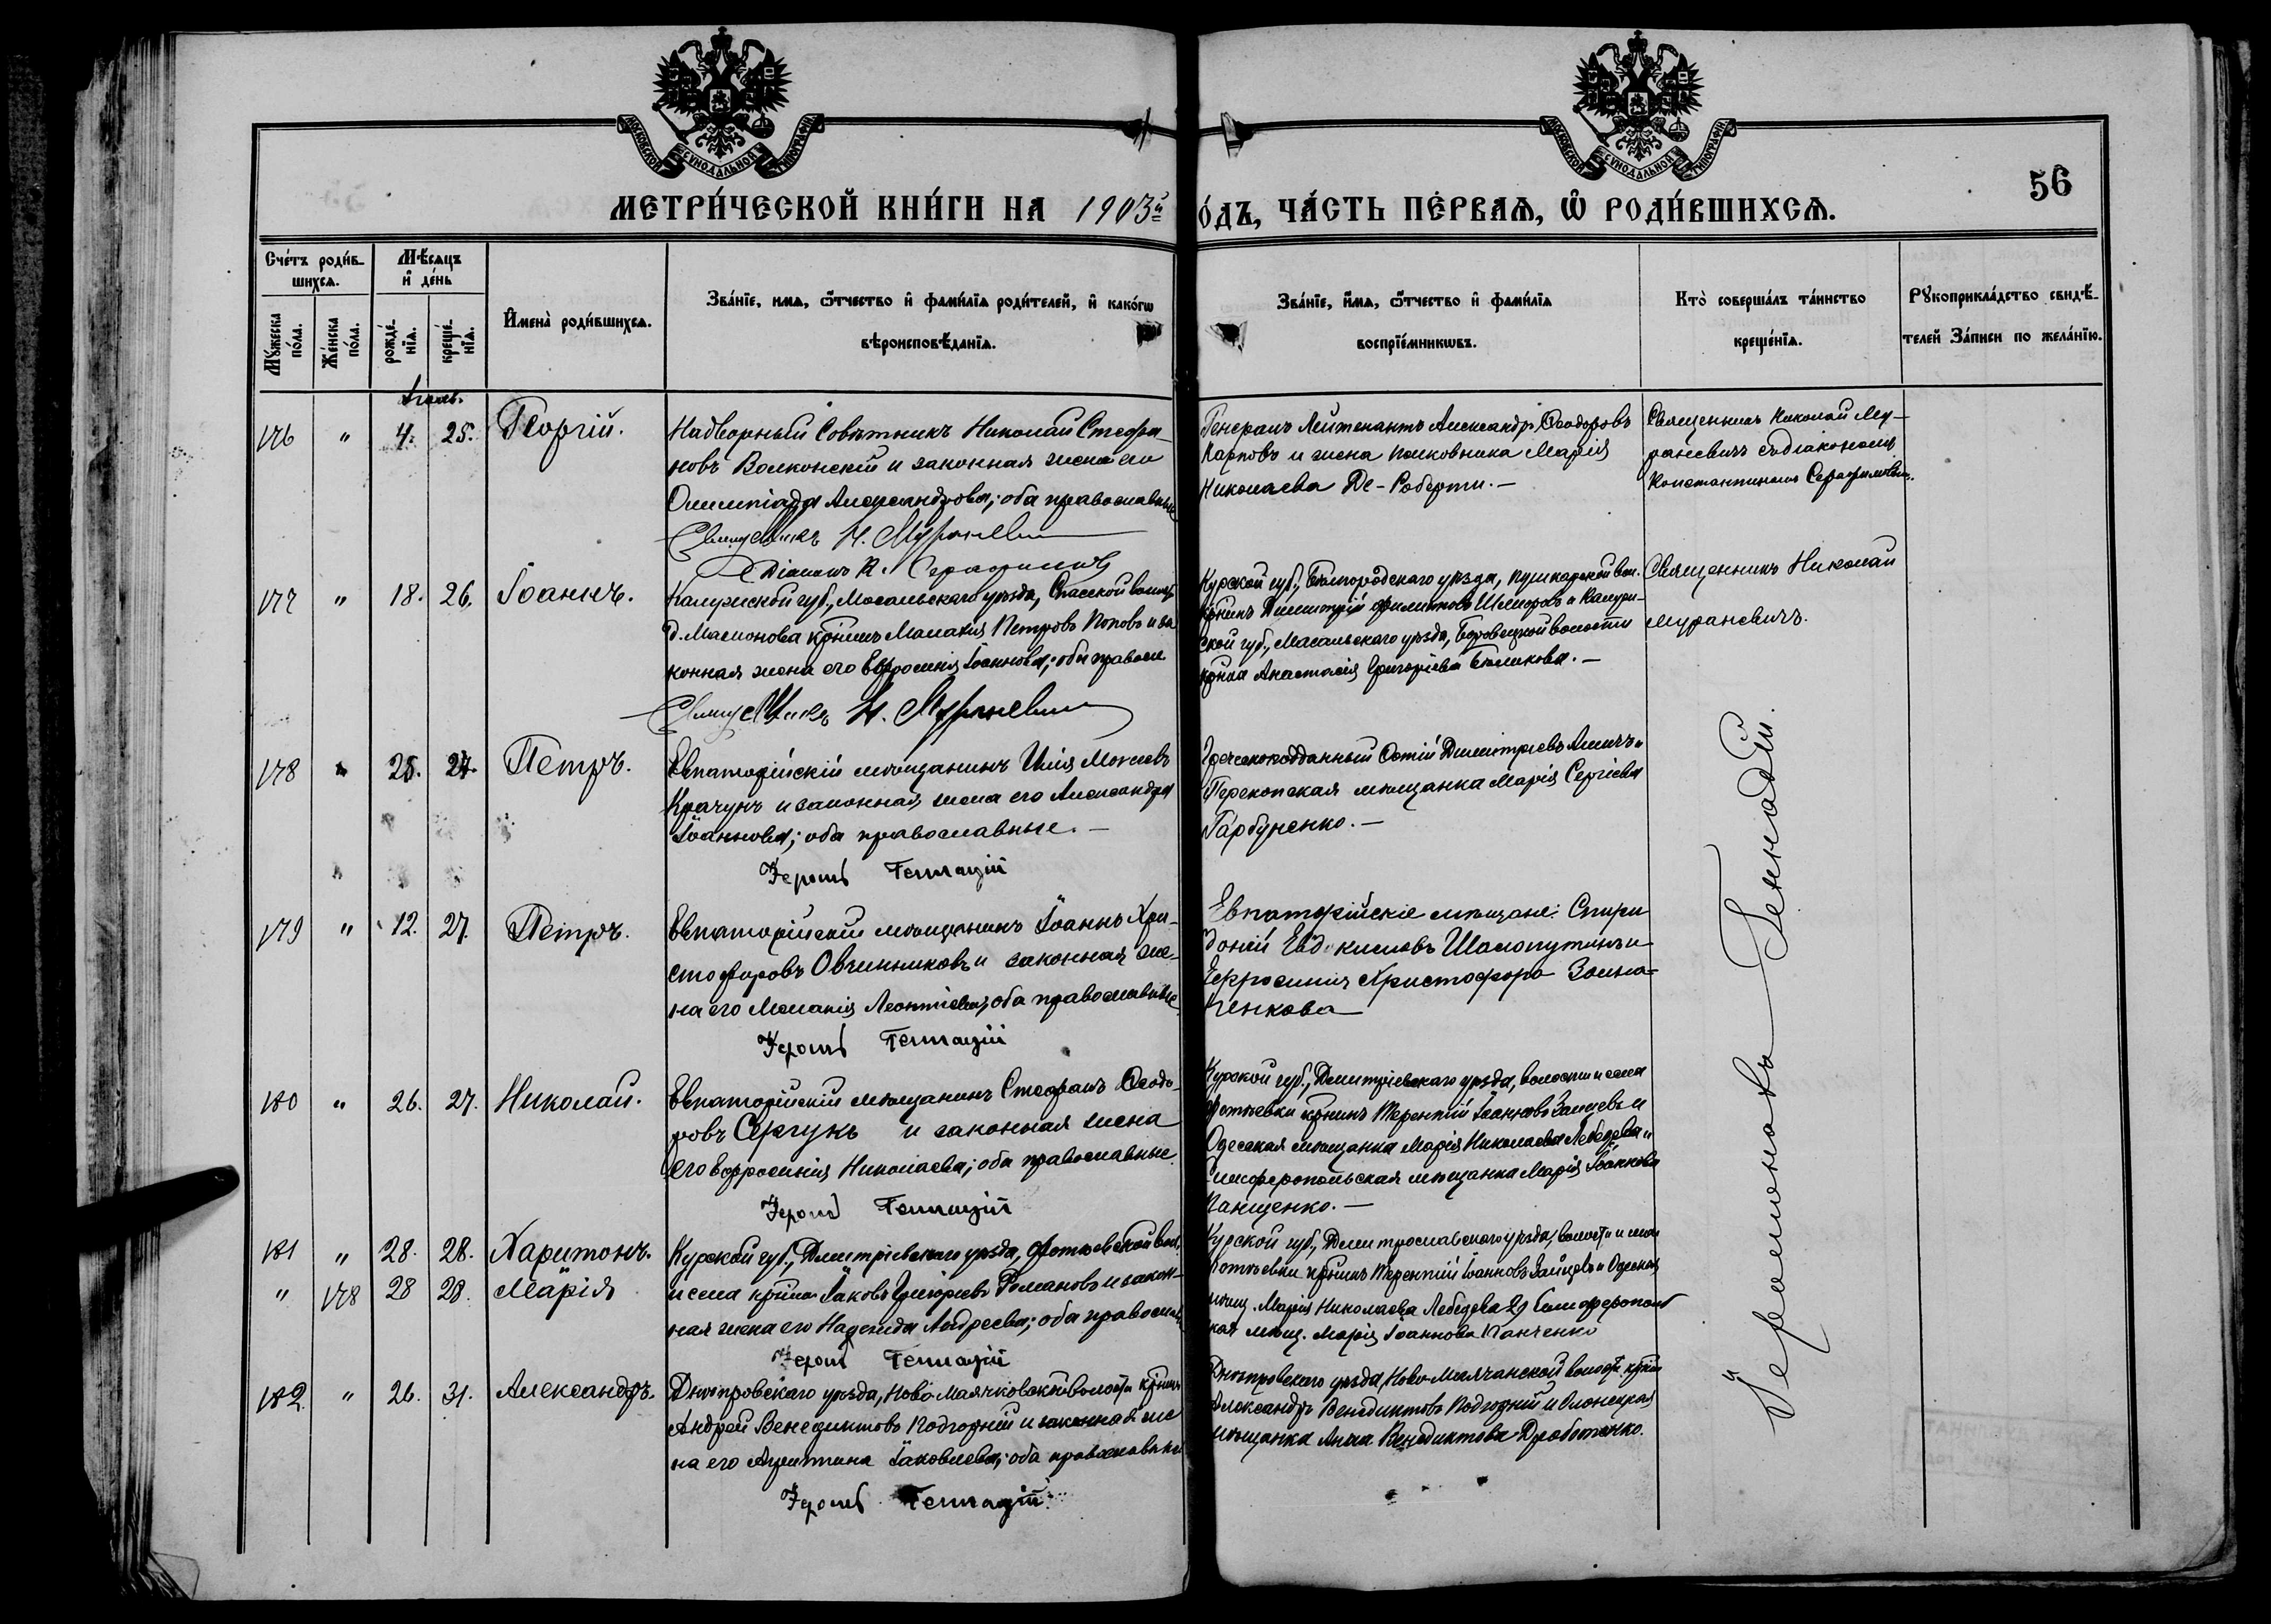 МОСКОВСКОЙ СѴНОДАЛЬНОЙ ТИПОГРАФІИ
МОСКОВСКОЙ СѴНОДАЛЬНОЙ ТИПОГРАФІИ
56
МЕТРИ́ЧЕСКОЙ КНИ́ГИ НА 1903й
О́ДЪ, ЧА́СТЬ ПЕ́РВАѦ, Ѡ РОДИ́ВШИХСѦ.
Сче́тъ роди́в-
шихсѧ.
Мꙋ́жеска по́ла.
Же́нска по́ла.
Мѣ́сѧцъ
и҆ де́нь
рожде́-
нїѧ.
креще́-
нїѧ.
И҆мена̀ роди́вшихсѧ.
Зва́нїе, имѧ, ѻ҆́тчество и҆ фами́лїѧ роди́телей, и҆ како́гѡ
вѣроисповѣ́данїѧ.
Зва́нїе, и҆́мѧ, ѻ҆́тчество и҆ фами́лїѧ
воспрїе́мникѡвъ.
Кто̀ соверша́лъ та́инство
креще́нїѧ.
Рꙋкоприкла́дство свидѣ́-
телей За́писи по жела́нїю.
176 " 4. 25. Георгій.
Надворный Совѣтникъ Николай Стефа-
новъ Волконскій и законная жена его
Олимпіада Александрова; оба православные
Священникъ Н. Мураневичъ
Діаконъ К. Серафимовъ
Генералъ Лейтенантъ Александръ Ѳеодоровъ
Карповъ и жена полковника Марія
Николаева Де-Роберти.-
Священникъ Николай Му-
раневичъ съ діакономъ
Константиномъ Серафимовымъ.
177 " 18. 26. Іоаннъ.
Калужской губ., Мосальскаго уѣзда, Спасской волости
д. Мамонова кр-нинъ Малахія Петровъ Поповъ и за
конная жена его Евфросинія Іоаннова; оба правосл.
Священникъ Н. Мураневичъ
Курской губ., Бѣлгородскаго уѣзда, Пушкарской вол.
кр-нинъ Димитрій Филиповъ и Калуж-
ской губ., Масальскаго уѣзда, Боровецкой волости
кр-нка Анастасія Григоріева Бѣликова.-
Священникъ Николай
Мураневичъ.
178 " 25. 27. Петръ.
Евпаторійскій мѣщанинъ Илія Моисеевъ
Крачунъ и законная жена его Александра
Іоаннова; оба православные.-
Іером Геннадій
Греческоподданный Фотій Димитріевъ и
Перекопская мѣщанка Марія Сергіева
Гарбуненко.-
179 " 12. 27. Петръ.
Евпаторійскій мѣщанинъ Іоаннъ Хри-
стофоровъ Овчинниковъ и законная же-
на его Меланія Леонтіева; оба православные
Іером Геннадій
Евпаторійскіе мѣщане: Спири
доній Евдокимовъ Шалопутинъ и
Ефросинія Христофора
ченкова
180 " 26. 27. Николай.
Евпаторійскій мѣщанинъ Стефанъ Ѳеодо-
ровъ Сергунь и законная жена
его Евфросинія Николаева; оба православные.
Іером Геннадій
Курской губ., Димитріевскаго уѣзда, волости и села
Фатѣевки кр-нинъ Терентій Іоанновъ Зайцевъ и
Одесская мѣщанка Марія Николаева Лебедева и
Симферопольская мѣщанка Марія Іоаннова
Панщенко.-
181 " 28. 28. Харитонъ.
" 178 28 28. Марія
Курской губ., Дмитріевскаго уѣзда, Фатѣевской вол.
и села кр-нинъ Іаковъ Григоріевъ Романовъ и закон-
ная жена его Надежда Андреева; оба православ
Іером Геннадій
Курской губ., Димитрославскаго уѣзда, волости и села
Фатѣевки кр-нинъ Терентій Іоанновъ Зайцевъ и Одесская
мѣщ. Марія Николаева Лебедева Симферополь
кая мѣщ. Марія Іоаннова Панченко
182. " 26. 31. Александръ.
Днѣпровскаго уѣзда, Ново Маячковской волости кр-нинъ
Андрей Венедиктовъ Подгорній и законная же
на его Іаковлева; оба православные
Іером Геннадій.
Днѣпровскаго уѣзда, Ново-Маячанской волости кр-нинъ
Александръ Венедиктовъ Подгорній и
мѣщанка Анна Венедиктова Дроботенко.
Іеромонахъ Геннадій.